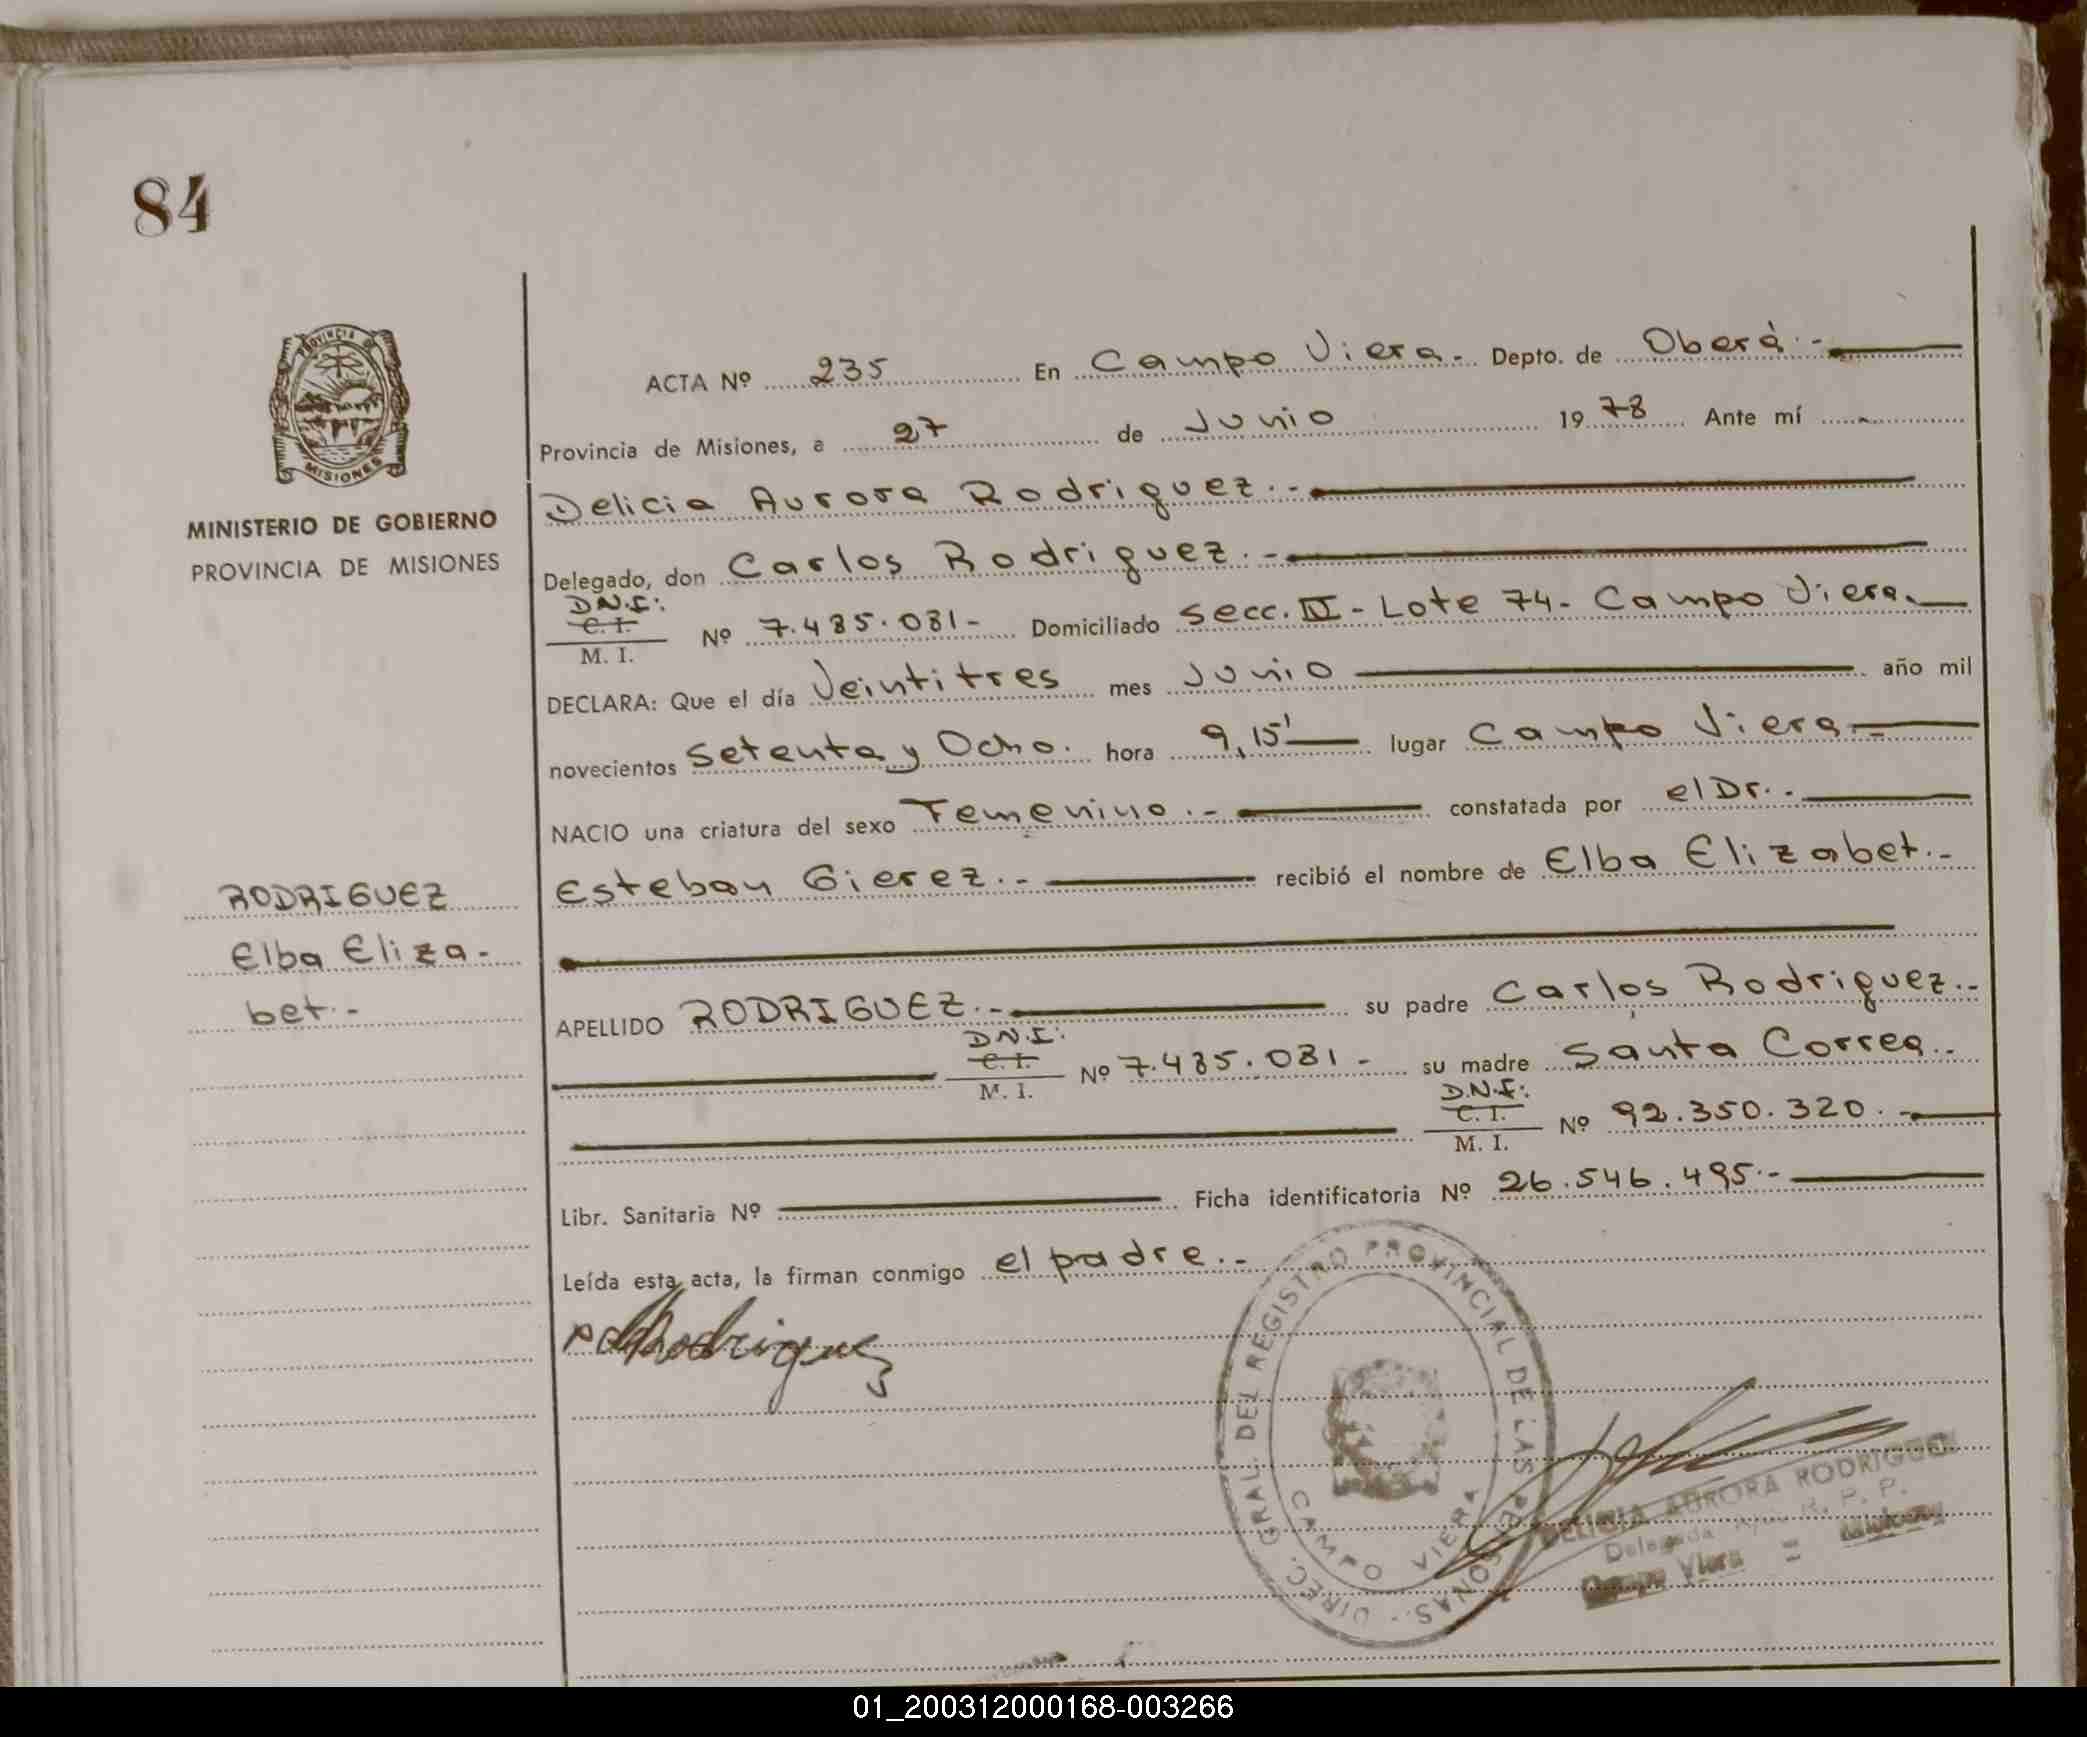 84
PROVINCIA DE
MISIONES
MINISTERIO DE GOBIERNO
PROVINCIA DE MISIONES
RODRIGUEZ
Elba Eliza-
bet.-
ACTA Nº 235 En Campo Viera.- Depto. de Oberá.-
Provincia de Misiones, a 27 de Junio 1978 Ante mí
Delicia Aurora Rodriguez.-
Delegado, don Carlos Rodriguez.-
D.N.I:
C. I.
M. I.
Nº 7.485.081- Domiciliado Secc. IV - Lote 74- Campo Viera.
DECLARA: Que el día Veintitres mes Junio año mil
novecientos Setenta y Ocho. hora 9,15' lugar Campo Viera-
NACIO una criatura del sexo Femenino.- constatada por el Dr..
Esteban Gierez.- recibió el nombre de Elba Elizabet.-
APELLIDO RODRIGUEZ.- su padre Carlos Rodriguez.-
D.N.I:
C. I.
M. I.
Nº 7.485.081- su madre Santa Correa.-
D.N.I:
C. I.
M. I.
Nº 92.350.320.-
Libr. Sanitaria Nº Ficha identificatoria Nº 26.546.495.-
Leída esta acta, la firman conmigo el padre.-
Rodriguez
DIREC. GRAL. DEL REGISTRO PROVINCIAL DE LAS PERSONAS.-
CAMPO VIERA
DELICIA AURORA RODRIGUEZ
Delegada R. P. P.
Campo Viera = Misiones
01_200312000168-003266